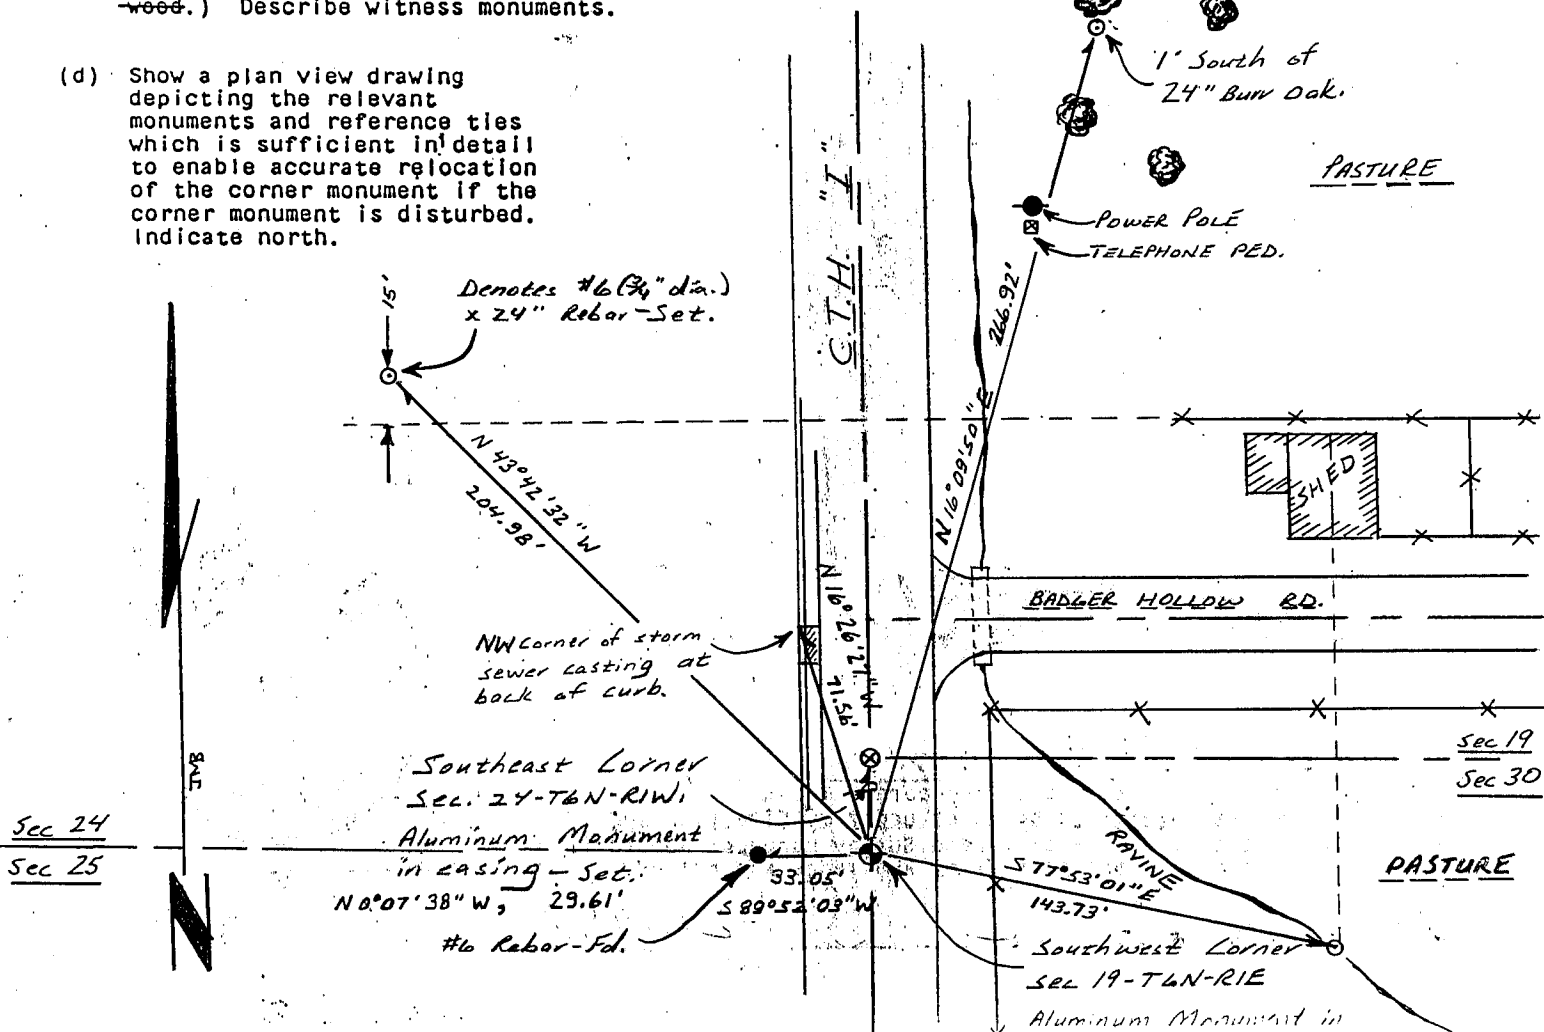 wood.) Describe witness monuments.
(d) Show a plan view drawing
depicting the relevant
monuments and reference ties
which is sufficient in detail
to enable accurate relocation
of the corner monument if the
corner monument is disturbed.
Indicate north.
1' South of
24" Burr Oak.
PASTURE
POWER POLE
TELEPHONE PED.
C.T.H. "I"
15'
Denotes #6 (3/4" dia.)
x 24" Rebar-Set.
266.92'
N 16°09'50" E
N 43°42'32" W
204.98'
SHED
BADGER HOLLOW RD.
N 16°26'27" W
71.56'
NW corner of storm
sewer casting at
back of curb.
Sec 19
Sec 30
JMB
Southeast Corner
Sec. 24-T6N-R1W,
Aluminum Monument
in casing - Set.
N 0°07'38" W, 29.61'
Sec 24
Sec 25
33.05'
S 89°52'03" W
#6 Rebar-Fd.
RAVINE
S 77°53'01" E
143.73'
PASTURE
N
Southwest Corner
Sec 19-T6N-R1E
Aluminum Monument in